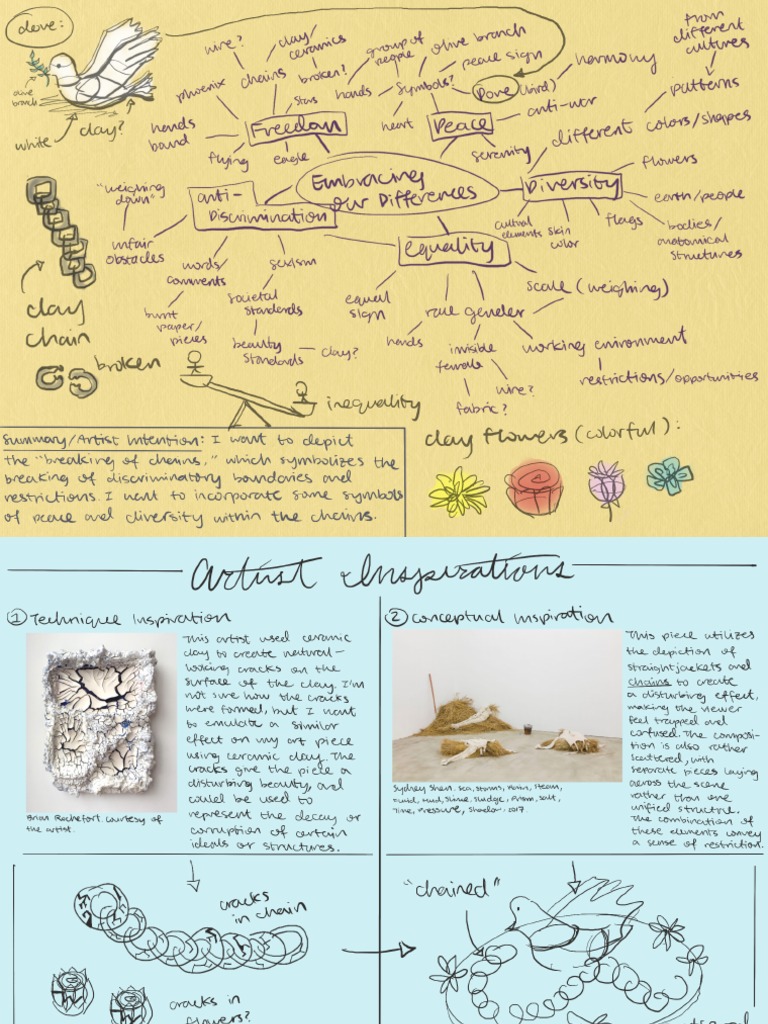 dove:
olive
branch
white
clay?
wire?
clay/
ceramics
phoenix
chains
broken?
stars
hands
bound
Freedom
flying
eagle
group of
people
olive branch
peace sign
hands
symbols?
Dove (bird)
harmony
heart
Peace
anti-war
serenity
from
different
cultures
patterns
different colors/shapes
Embracing
our Differences
Diversity
flowers
earth/people
flags
bodies/
anatomical
structures
cultural
elements
skin
color
"weighing
down"
anti-
Discrimination
unfair
obstacles
words/
comments
sexism
burnt
paper/
pieces
societal
standards
beauty
standards
clay?
equality
equal
sign
race
gender
scale (weighing)
hands
invisible
female
working environment
wire?
fabric?
restrictions/opportunities
clay
chain
broken
inequality
Summary/Artist Intention: I want to depict
the "breaking of chains," which symbolizes the
breaking of discriminatory boundaries and
restrictions. I want to incorporate some symbols
of peace and diversity within the chains.
clay flowers (colorful):
Artist Inspirations
① Technique Inspiration
This artist used ceramic
clay to create natural-
looking cracks on the
surface of the clay. I'm
not sure how the cracks
were formed, but I want
to emulate a similar
effect on my art piece
using ceramic clay. The
cracks give the piece a
disturbing beauty and
could be used to
represent the decay or
corruption of certain
ideals or structures.
Brian Rochefort. Courtesy of
the artist.
② Conceptual Inspiration
This piece utilizes
the depiction of
straightjackets and
chains to create
a disturbing effect,
making the viewer
feel trapped and
confused. The composi-
tion is also rather
scattered, with
separate pieces laying
across the scene
rather than one
unified structure.
The combination of
these elements convey
a sense of restriction.
Sydney Shen. Sea, Storms, Rain, Steam,
Mud, Slime, Sludge, Prism, Salt,
Time, Pressure, Shadow, 2017.
cracks
in chain
cracks in
flowers?
"chained"